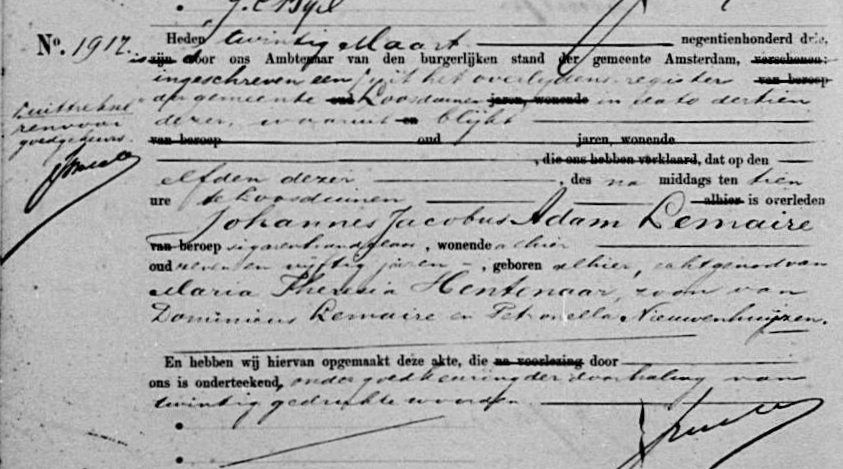 Nº. 1917.
Heden twintig Maart negentienhonderd drie,
is zijn door ons Ambtenaar van den burgerlijken stand der gemeente Amsterdam, verschenen:
ingeschreven een uit het overlijdens register van beroep
der gemeente oud Loosduinen jaren, wonende in dato dertien
dezer, waaruit en blijkt
van beroep oud jaren, wonende
, die ons hebben verklaard, dat op den
elfden dezer , des na middags ten tien
ure te Loosduinen alhier is overleden
Johannes Jacobus Adam Lemaire
van beroep sigarenhandelaar , wonende alhier
oud zeven en vijftig jaren , geboren alhier, echtgenoot van
Maria Theresia Hentenaar, zoon van
Dominicus Lemaire en Petronella Nieuwenhuijzen.
En hebben wij hiervan opgemaakt deze akte, die na voorlezing door
ons is onderteekend, onder goedkeuring der doorhaling van
twintig gedrukte woorden
uittreksel
goedgekeurd.